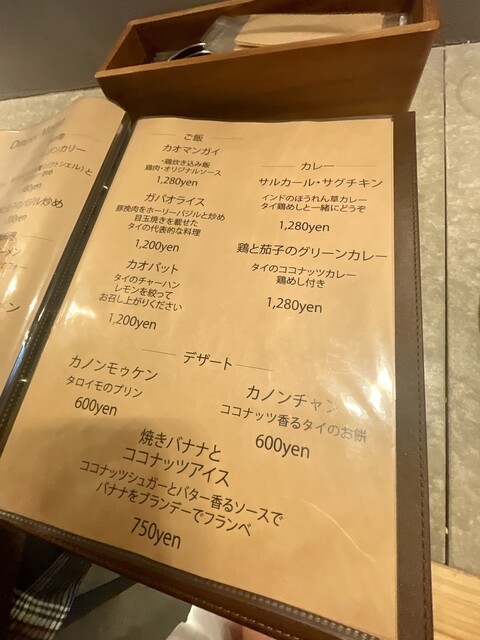 ご飯
カオマンガイ
・鶏炊き込み飯
鶏肉・オリジナルソース
1,280yen
ガパオライス
豚挽肉をホーリーバジルと炒め
目玉焼きを載せた
タイの代表的な料理
1,200yen
カオパット
タイのチャーハン
レモンを絞って
お召し上がりください
1,200yen
カレー
サルカール・サグチキン
インドのほうれん草カレー
タイ鶏めしと一緒にどうぞ
1,280yen
鶏と茄子のグリーンカレー
タイのココナッツカレー
鶏めし付き
1,280yen
デザート
カノンモゥケン
タロイモのプリン
600yen
カノンチャン
ココナッツ香るタイのお餅
600yen
焼きバナナと
ココナッツアイス
ココナッツシュガーとバター香るソースで
バナナをブランデーでフランベ
750yen